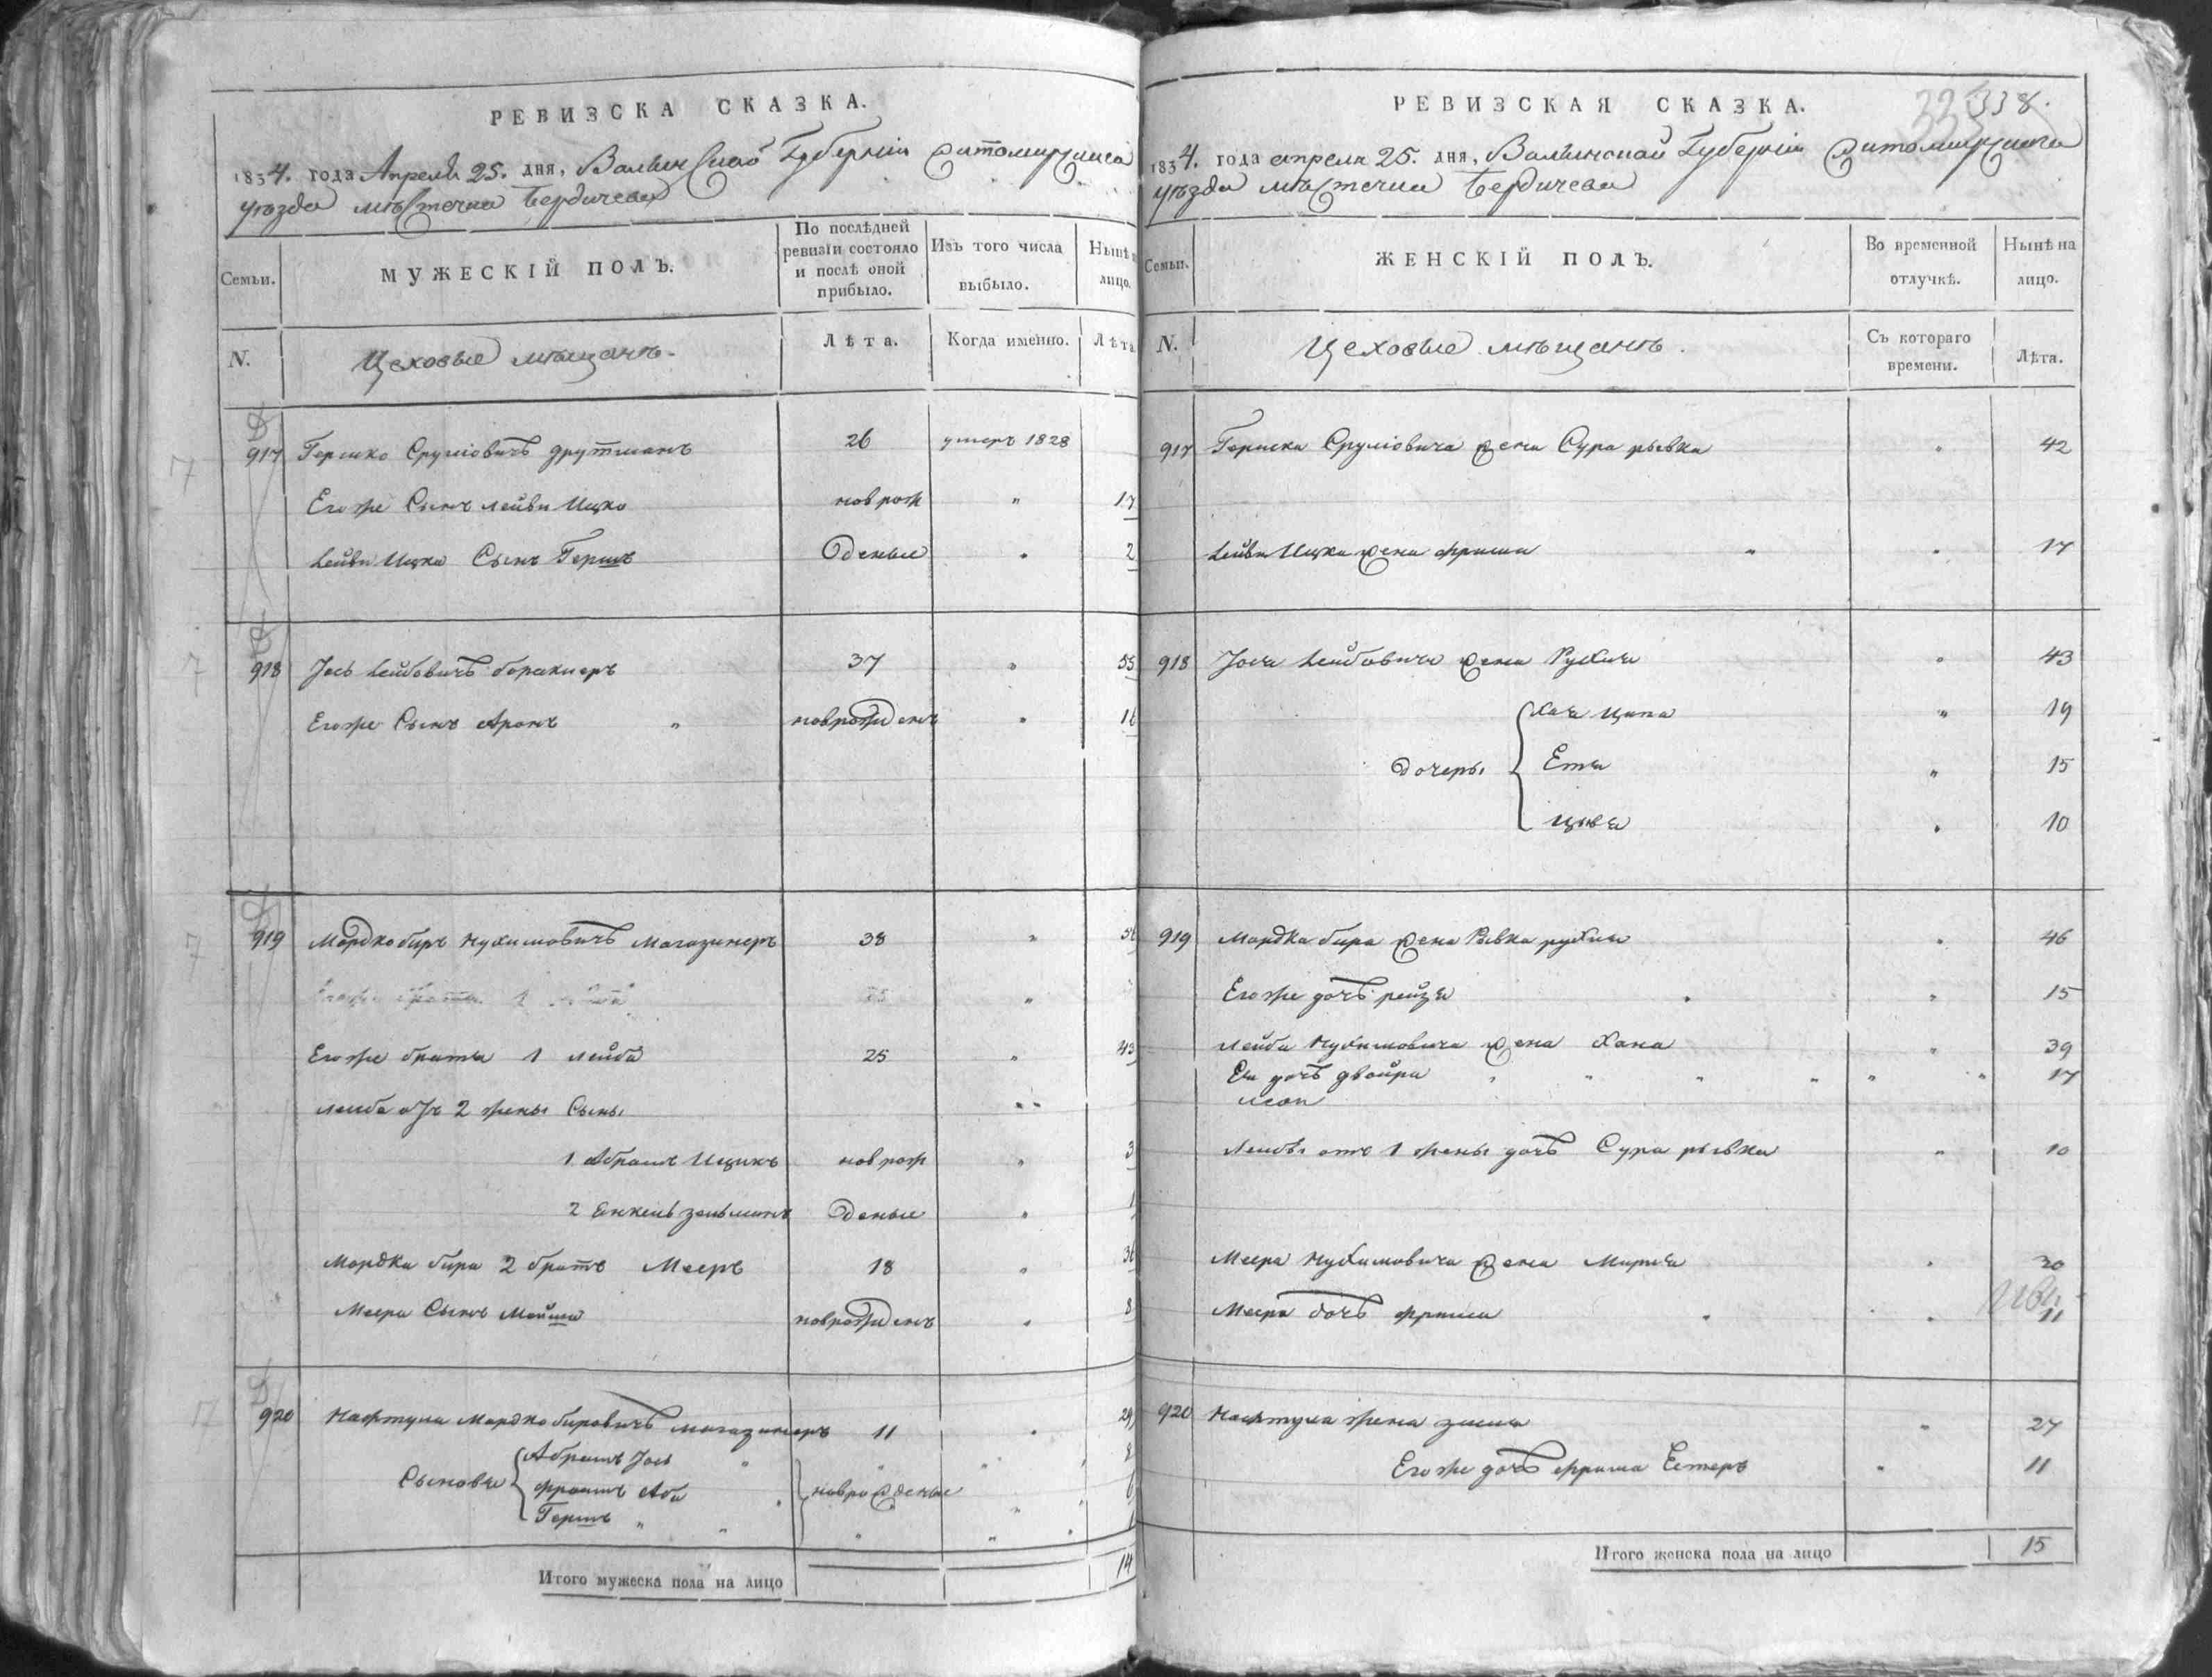 РЕВИЗСКА СКАЗКА.
1834. года Апреля 25. дня, Волынской Губерніи Житомирскаго
уѣзда мѣстечка Бердичева
Семьи.
МУЖЕСКІЙ ПОЛЪ.
По послѣдней ревизіи состояло и послѣ оной прибыло.
Изъ того числа выбыло.
Нынѣ на лицо.
N.
Цеховые мѣщанъ.
Лѣта.
Когда именно.
Лѣта
917 Гершко Сруліовичъ друтманъ 26 умеръ 1828
Его же Сынъ лейви Ицко новрож " 17
Лейви Ицка Сынъ Гершъ Оденые " 2
918 Іось Лейбовичъ 37 " 53
Его же Сынъ Аронъ " новрожденъ " 16
919 Мордко биръ Нухимовичъ Магазинеръ 38 "
Его же братья 1 лейба 25 " 43
лейба отъ 2 жены Сыны " "
1 Абрамъ Ицикъ новрож " 3
2 Енкель зельманъ деные " 1
Мордка бира 2 братъ Мееръ 18 "
Меера Сынъ Мойша новрожденъ " 8
920 Нафтула Мордко бировичъ магазинеръ 11 "
Сыновья Абрамъ Іось
Фроимъ Аба новрожденые
Гершъ
Итого мужеска пола на лицо 14
РЕВИЗСКАЯ СКАЗКА.
338.
1834. года апреля 25. дня, Волынской Губерніи Житомирскаго
уѣзда мѣстечка Бердичева
Семьи.
ЖЕНСКІЙ ПОЛЪ.
Во временной отлучкѣ.
Нынѣ на лицо.
N.
Цеховые мѣщанъ.
Съ котораго времени.
Лѣта.
917 Гершка Сруліовича жена Сура рывка " 42
Лейви Ицка жена фрима " " 17
918 Іося Лейбовича жена Рухля " 43
Хая Ципа " 19
дочеры Етя " 15
Цывя " 10
919 Мордка бира жена Рывка рухля " 46
Его же дочь рейзя " " 15
Лейби Нухимовича жена Хана " 39
Ея дочь двойра " 17
Лейбы отъ 1 жены дочь Сура рывка " 10
Меера Нухимовича жена Мирля " 30
Меера дочь фрима " " 11
920 Нафтула жена " 27
Его же дочь фрима Естеръ " 11
Итого женска пола на лицо 15